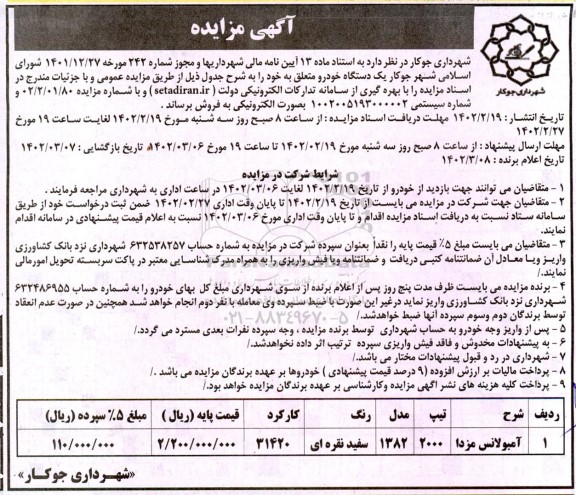 آگهی مزایده
شهرداری جوکار
شهرداری جوکار در نظر دارد به استناد ماده ۱۳ آیین نامه مالی شهرداریها و مجوز شماره ۲۴۲ مورخه ۱۴۰۱/۱۲/۲۷ شورای
اسلامی شهر جوکار یک دستگاه خودرو متعلق به خود را به شرح جدول ذیل از طریق مزایده عمومی و با جزئیات مندرج در
اسناد مزایده را با بهره گیری از سامانه تدارکات الکترونیکی دولت ( setadiran.ir ) و با شماره مزایده ۰۲/۲/۰۱/۸۰ و
شماره سیستمی ۱۰۰۲۰۰۵۱۹۳۰۰۰۰۰۲ بصورت الکترونیکی به فروش برساند .
تاریخ انتشار : ۱۴۰۲/۲/۱۹ مهلت دریافت اسناد مزایده : از ساعت ۸ صبح روز سه شنبه مورخ ۱۴۰۲/۲/۱۹ لغایت ساعت ۱۹ مورخ
۱۴۰۲/۲/۲۷
مهلت ارسال پیشنهاد : از ساعت ۸ صبح روز سه شنبه مورخ ۱۴۰۲/۲/۱۹ تا ساعت ۱۹ مورخ ۱۴۰۲/۰۳/۰۶، تاریخ بازگشایی : ۱۴۰۲/۰۳/۰۷
تاریخ اعلام برنده : ۱۴۰۲/۳/۰۸
شرایط شرکت در مزایده
۱ - متقاضیان می توانند جهت بازدید از خودرو از تاریخ ۱۴۰۲/۲/۱۹ لغایت ۱۴۰۲/۰۳/۰۶ در ساعت اداری به شهرداری مراجعه فرمایند .
۲ - متقاضیان جهت شرکت در مزایده می بایست از تاریخ ۱۴۰۲/۲/۱۹ تا پایان وقت اداری ۱۴۰۲/۰۲/۲۷ ضمن ثبت درخواست خود از طریق
سامانه ستاد نسبت به دریافت اسناد مزایده اقدام و تا پایان وقت اداری مورخ ۱۴۰۲/۰۳/۰۶ نسبت به اعلام قیمت پیشنهادی در سامانه اقدام
نمایند.
۳ - متقاضیان می بایست مبلغ ۵٪ قیمت پایه را نقداً بعنوان سپرده شرکت در مزایده به شماره حساب ۶۳۲۵۳۸۲۵۷ شهرداری نزد بانک کشاورزی
واریز ویا معادل آن ضمانتنامه کتبی دریافت و ضمانتنامه ویا فیش واریزی را به همراه مدرک شناسایی معتبر در پاکت سربسته تحویل امورمالی
نمایند./
۴ - برنده مزایده می بایست ظرف مدت پنج روز پس از اعلام برنده از سوی شهرداری مبلغ کل بهای خودرو را به شماره حساب ۶۳۲۴۸۶۹۵۵
شهرداری نزد بانک کشاورزی واریز نماید درغیر این صورت با ضبط سپرده وی معامله با نفر دوم انجام خواهد شد همچنین در صورت عدم انعقاد
توسط برندگان دوم وسوم سپرده آنها ضبط خواهدشد./
۵ - پس از واریز وجه خودرو به حساب شهرداری توسط برنده مزایده ، وجه سپرده نفرات بعدی مسترد می گردد./
۶ - به پیشنهادات مخدوش و فاقد فیش واریزی سپرده ترتیب اثر داده نخواهدشد./
۷ - شهرداری در رد و قبول پیشنهادات مختار می باشد./
۸ - پرداخت مالیات بر ارزش افزوده (۹ درصد قیمت پیشنهادی ) خودروها بر عهده برندگان مزایده می باشد ./
۹ - پرداخت کلیه هزینه های نشر آگهی مزایده وکارشناسی بر عهده برندگان مزایده خواهد بود./
ردیف شرح تیپ مدل رنگ کارکرد قیمت پایه (ریال ) مبلغ ۵٪ سپرده (ریال)
۱ آمبولانس مزدا ۲۰۰۰ ۱۳۸۲ سفید نقره ای ۳۱۴۲۰ ۲/۲۰۰/۰۰۰/۰۰۰ ۱۱۰/۰۰۰/۰۰۰
«شهرداری جوکار»
۰۲۱-۸۸۳۴۹۶۷۰-۵